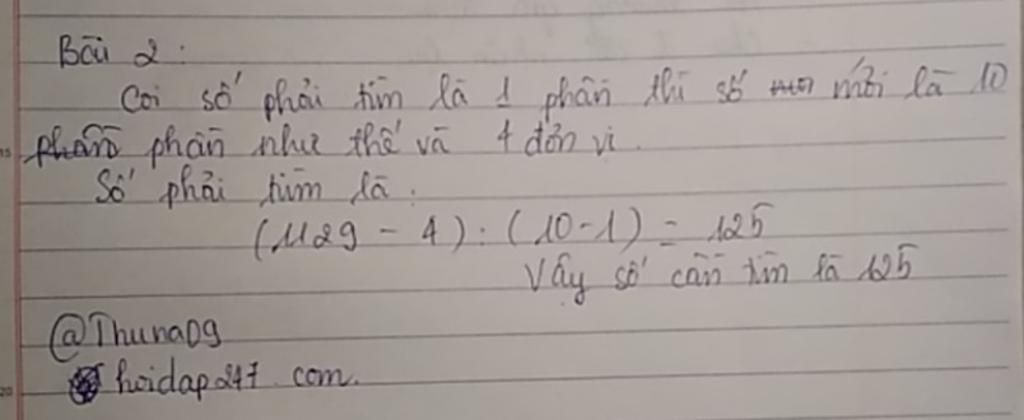 Bài 2 :
Coi số phải tìm là 1 phần thì số mới là 10
phần như thế và 4 đơn vị.
Số phải tìm là :
(1129 - 4) : (10-1) = 125
Vậy số cần tìm là 125
@Thuna09
hoidap247 . com.